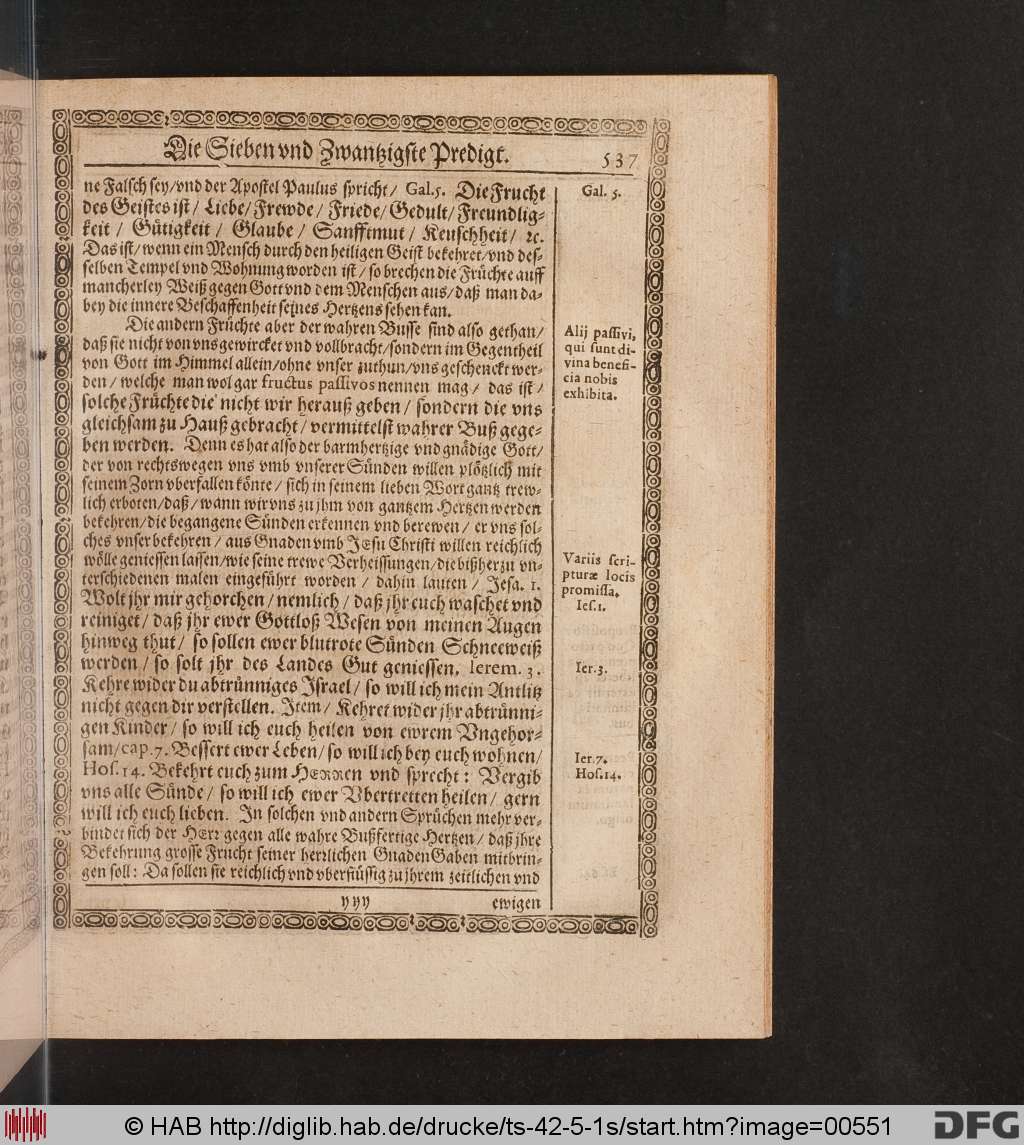 Die Sieben vnd Zwantzigste Predigt. 537
ne Falsch sey/vnd der Apostel Paulus spricht/ Gal.5. Die Frucht
des Geistes ist/ Liebe/ Frewde/ Friede/ Gedult/ Freundlig-
keit/ Gütigkeit/ Glaube/ Sanfftmut/ Keuschheit/ ꝛc.
Das ist/ wenn ein Mensch durch den heiligen Geist bekehret/vnd des-
selben Tempel vnd Wohnung worden ist/ so brechen die Früchte auff
mancherley Weiß gegen Gott vnd dem Menschen aus/ daß man da-
bey die innere Beschaffenheit seines Hertzens sehen kan.
Die andern Früchte aber der wahren Busse sind also gethan/
daß sie nicht von vns gewircket vnd vollbracht/sondern im Gegentheil
von Gott im Himmel allein/ohne vnser zuthun/vns geschenckt wer-
den/ welche man wol gar fructus passivos nennen mag/ das ist/
solche Früchte die nicht wir herauß geben/ sondern die vns
gleichsam zu Hauß gebracht/ vermittelst wahrer Buß gege-
ben werden. Denn es hat also der barmhertzige vnd gnädige Gott/
der von rechtswegen vns vmb vnserer Sünden willen plötzlich mit
seinem Zorn vberfallen könte/ sich in seinem lieben Wort gantz trew-
lich erboten/daß/ wann wir vns zu jhm von gantzem Hertzen werden
bekehren/die begangene Sünden erkennen vnd berewen/ er vns sol-
ches vnser bekehren/ aus Gnaden vmb JEsu Christi willen reichlich
wölle geniessen lassen/wie seine trewe Verheissungen/die bißher zu vn-
terschiedenen malen eingeführt worden/ dahin lauten/ Jesa. 1.
Wolt jhr mir gehorchen/ nemlich/ daß jhr euch waschet vnd
reiniget/ daß jhr ewer Gottloß Wesen von meinen Augen
hinweg thut/ so sollen ewer blutrote Sünden Schneeweiß
werden/ so solt jhr des Landes Gut geniessen. Ierem. 3.
Kehre wider du abtrünniges Israel/ so will ich mein Antlitz
nicht gegen dir verstellen. Item/ Kehret wider jhr abtrünni-
gen Kinder/ so will ich euch heilen von ewrem Vngehor-
sam/cap. 7. Bessert ewer Leben/ so will ich bey euch wohnen/
Hos. 14. Bekehrt euch zum HERREN vnd sprecht: Vergib
vns alle Sünde/ so will ich ewer Vbertretten heilen/ gern
will ich euch lieben. In solchen vnd andern Sprüchen mehr ver-
bindet sich der HErr gegen alle wahre Bußfertige Hertzen/ daß jhre
Bekehrung grosse Frucht seiner herrlichen GnadenGaben mitbrin-
gen soll: Da sollen sie reichlich vnd vberflüssig zu jhrem zeitlichen vnd
yyy ewigen
Gal. 5.
Alij passivi,
qui sunt di-
vina benefi-
cia nobis
exhibita.
Variis scri-
pturæ locis
promissa.
Ies.1.
Ier.3.
Ier.7.
Hos.14.
© HAB http://diglib.hab.de/drucke/ts-42-5-1s/start.htm?image=00551
DFG